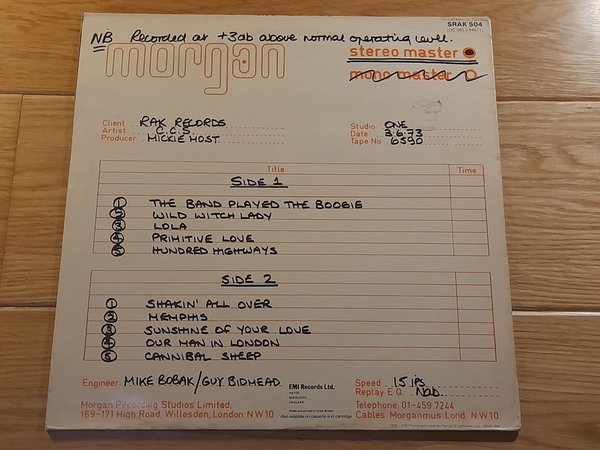 SRAK 504
NB Recorded at +3db above normal operating level.
morgan
stereo master
mono master
Client RAK RECORDS
Artist C.C.S.
Producer MICKIE MOST
Studio ONE
Date 3.6.73
Tape No 6590
Title Time
SIDE 1
1 THE BAND PLAYED THE BOOGIE
2 WILD WITCH LADY
3 LOLA
4 PRIMITIVE LOVE
5 HUNDRED HIGHWAYS
SIDE 2
1 SHAKIN' ALL OVER
2 MEMPHIS
3 SUNSHINE OF YOUR LOVE
4 OUR MAN IN LONDON
5 CANNIBAL SHEEP
Engineer MIKE BOBAK/GUY BIDMEAD
EMI Records Ltd.
HAYES
MIDDLESEX
ENGLAND
Made and printed in Great Britain
Also available on cassette and cartridge
Speed 15 ips
Replay E.Q Nab.
Morgan Recording Studios Limited,
169-171 High Road, Willesden, London N.W.10
Telephone 01-459 7244
Cables Morganmus Lond. N.W.10.